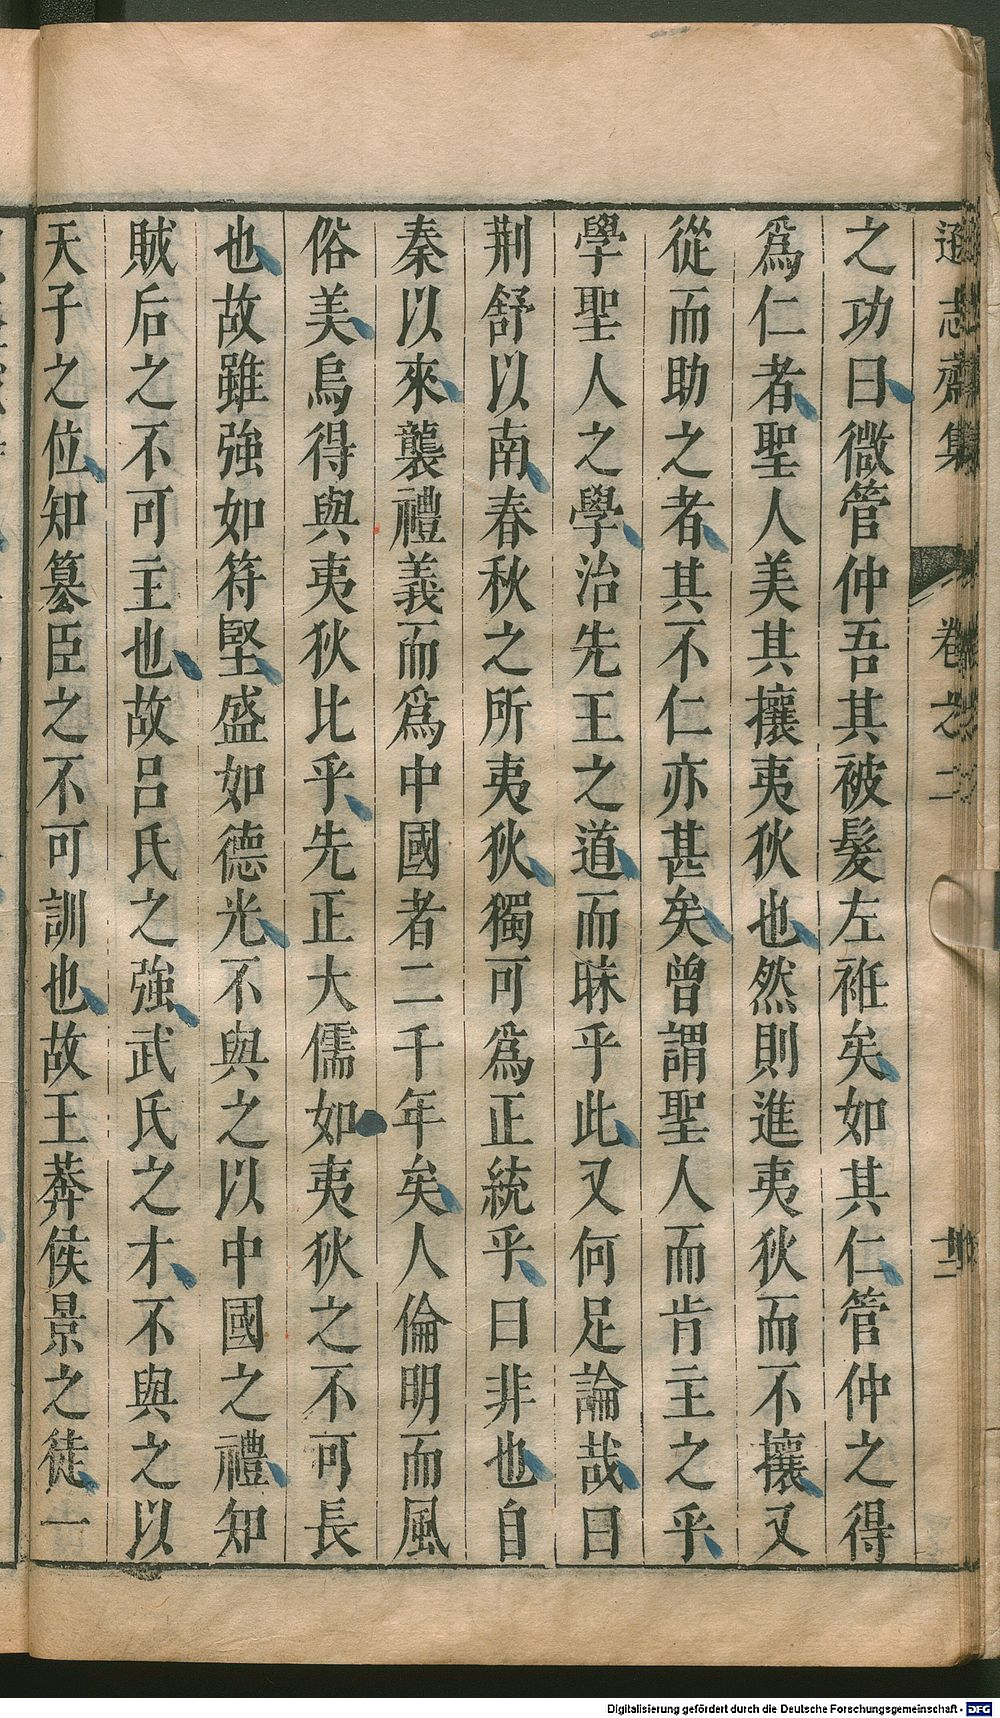 遜志齋集 卷之二 十二
之功曰微管仲吾其被髮左袵矣如其仁管仲之得
爲仁者聖人美其攘夷狄也然則進夷狄而不攘又
從而助之者其不仁亦甚矣曾謂聖人而肯主之乎
學聖人之學治先王之道而昧乎此又何足論哉曰
荆舒以南春秋之所夷狄獨可爲正統乎曰非也自
秦以來襲禮義而爲中國者二千年矣人倫明而風
俗美烏得與夷狄比乎先正大儒如夷狄之不可長
也故雖強如符堅盛如德光不與之以中國之禮知
賊后之不可主也故呂氏之強武氏之才不與之以
天子之位知篡臣之不可訓也故王莽侯景之徒一
Digitalisierung gefördert durch die Deutsche Forschungsgemeinschaft - DFG